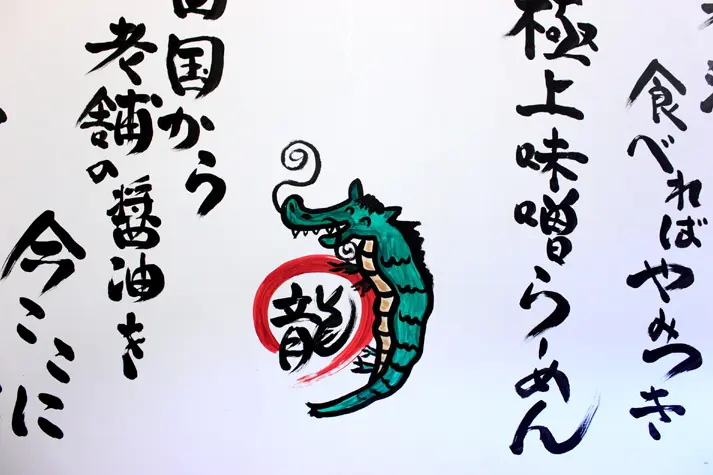 食べればやみつき
極上味噌らーめん
龍
国から
老舗の醤油き
今ここに